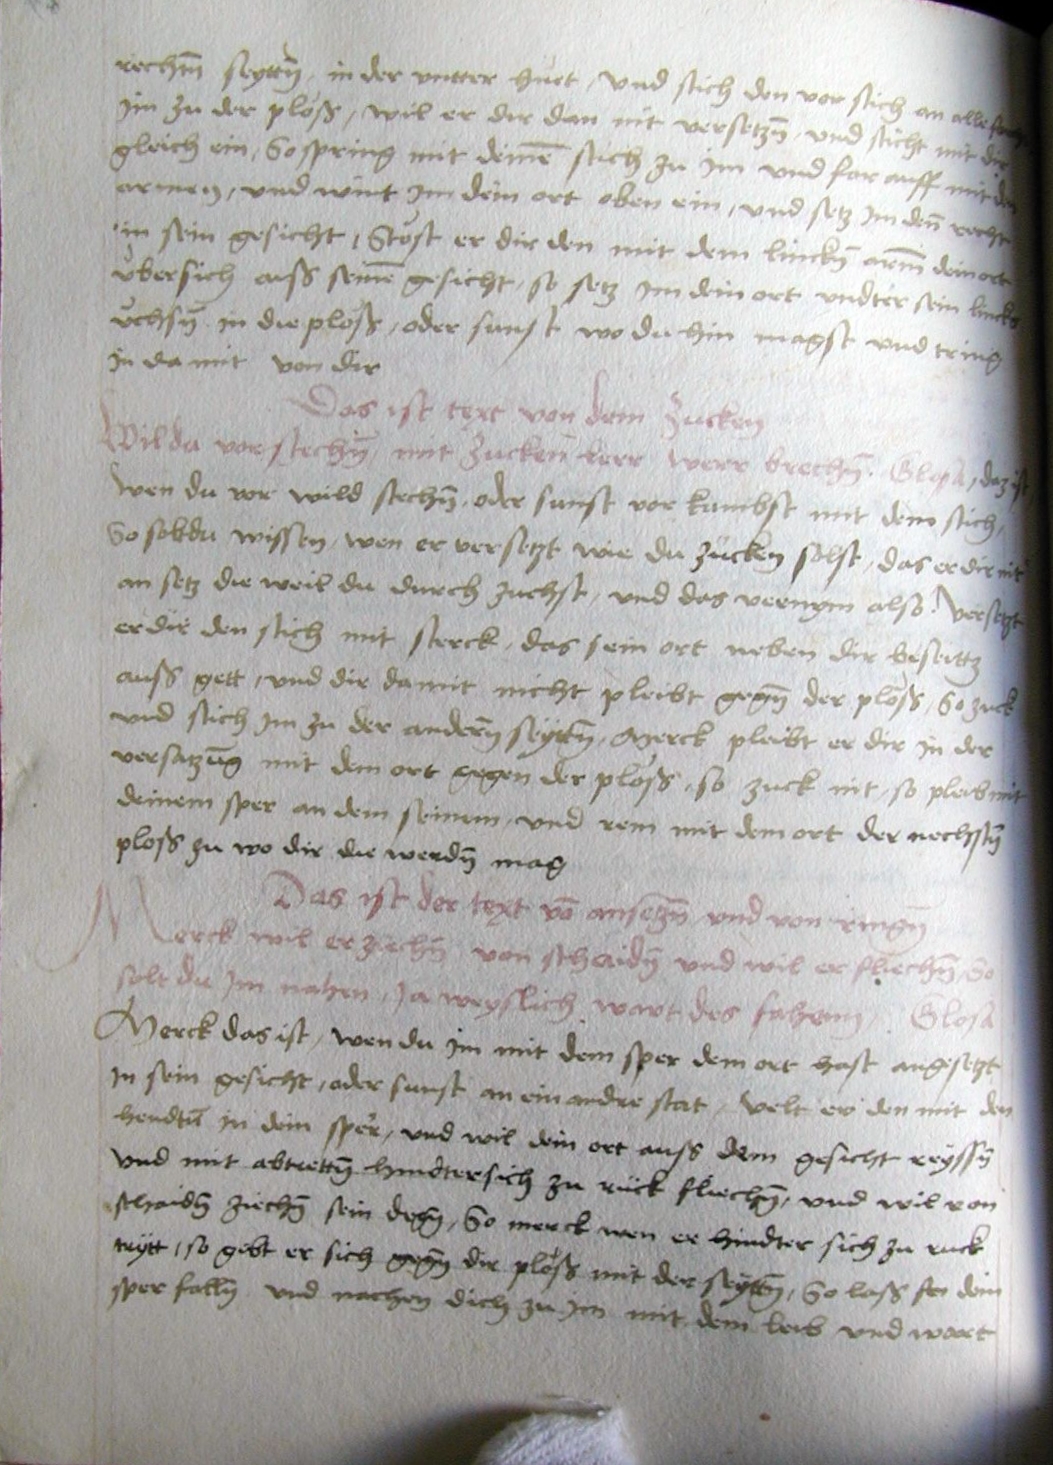 rechtñ seyttñ, in der vntter huet, Vnd stich den vor stich an alle
Im zu der ploß, wil er dir dan nit versetzñ, vnd sticht mit dir
gleich ein, So spring mit deinē stich zu im vnd far auff mit den
armen, vnd wint im dein ort oben ein, vnd setz im den recht
in sein gesicht, Stost er dir den mit dem linckñ arm dein ort
vbersich auß seinē gesicht, so setz im dein ort vndter sein linck
vchsñ in die ploß, oder sunst wo du hin magst vnd tring
in da mit von dir
Das ist text von dem Zucken
Wildu vor stechñ, mit Zucken lerr werr brechñ. Glosa, daz ist
Wen du vor wild stechñ, oder sunst vor kumbst mit dem stich,
So soltdu wissen, wen er versetzt wie du zucken solst, das er dir nit
an setz die weil du durch zuchst, vnd das vernym also Versetzt
er dir den stich mit sterck, das sein ort neben dir beseittz
auß gett, vnd dir damit nicht pleibt gegñ der ploß, So zuck
vnd stich im zu der anderñ seyttñ, Merck pleibt er dir in der
versatzūg mit dem ort gegen der ploß, so zuck nit, so pleib mit
deinem sper an dem seinem, vnd rem mit dem ort der nechstñ
ploß zu wo dir die werdñ mag
Das ist der text vō ansetzñ vnd von ringñ
Merck wil er ziechñ, von schaidñ vnd wil er fliechñ, So
solt du im nahen, Ja weyslich wart des fahenn, Glosa
Merck das ist, wen du im mit dem sper dem ort hast angesetzt
In sein gesicht, oder sunst an ein andre stat, Velt er den mit den
hendtñ in dein sper, vnd wil dein ort auß dem gesicht reyssñ
Vnd mit abtrettñ hindtersich zu rück fliechñ, vnd wil von
schaidñ ziechñ sein degñ, So merck wen er hindter sich zu ruck
trytt, so gebt er sich gegñ dir ploß mit der seyttñ, So laß frei dein
sper fallñ vnd nachen dich zu im mit dem leib vnd wart